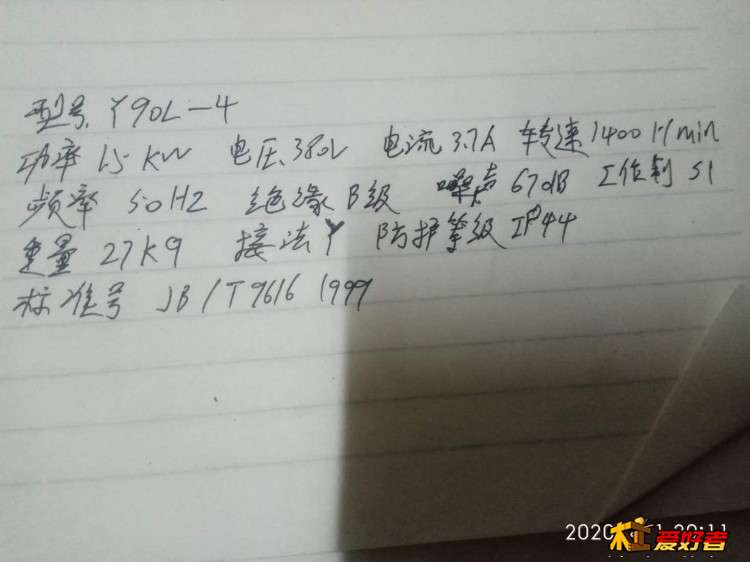 型号 Y90L-4
功率 1.5KW 电压 380V 电流 3.7A 转速 1400 r/min
频率 50HZ 绝缘 B级 噪声 67dB 工作制 S1
重量 27Kg 接法 Y 防护等级 IP44
标准号 JB/T9616 1999
爱好者